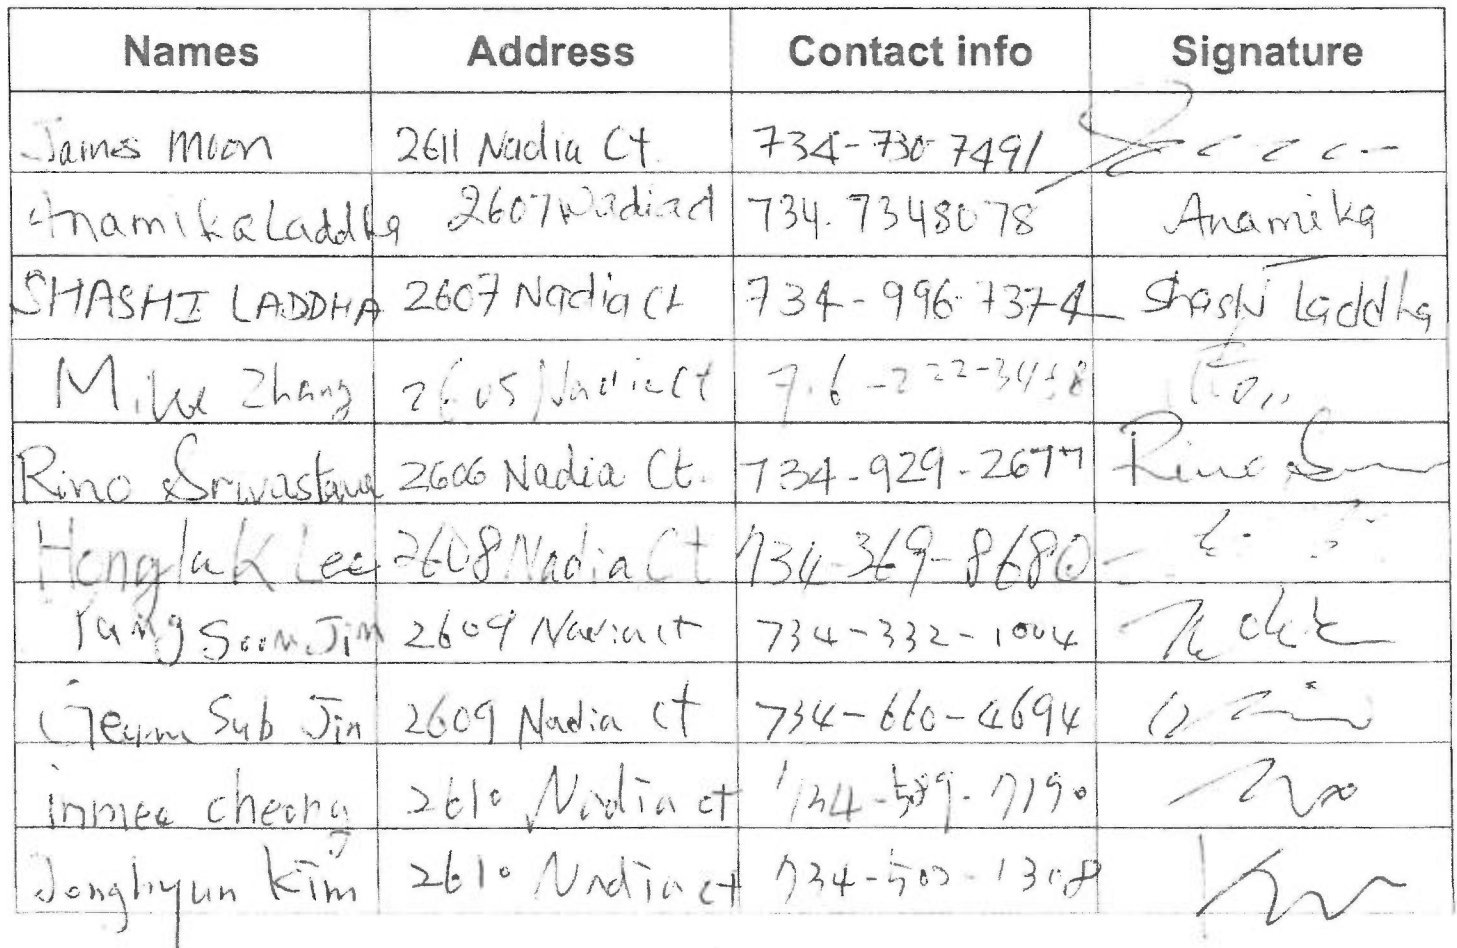 Names Address Contact info Signature
James Moon 2611 Nadia Ct. 734-730-7491
Anamika Laddha 2607 Nadia ct 734.7348078 Anamika
SHASHI LADDHA 2607 Nadia ct 734-996-7374 Shashi Laddha
Mike Zhang 2605 Nadia Ct
Rino Srivastava 2606 Nadia Ct. 734-929-2677 Rino
Honglak Lee 2608 Nadia Ct 734-369-8680
Yang Soon Jin 2609 Nadia ct 734-332-1004
Geum Sub Jin 2609 Nadia ct 734-660-4694
inmee cheong 2610 Nadia ct
Jonghyun Kim 2610 Nadia ct